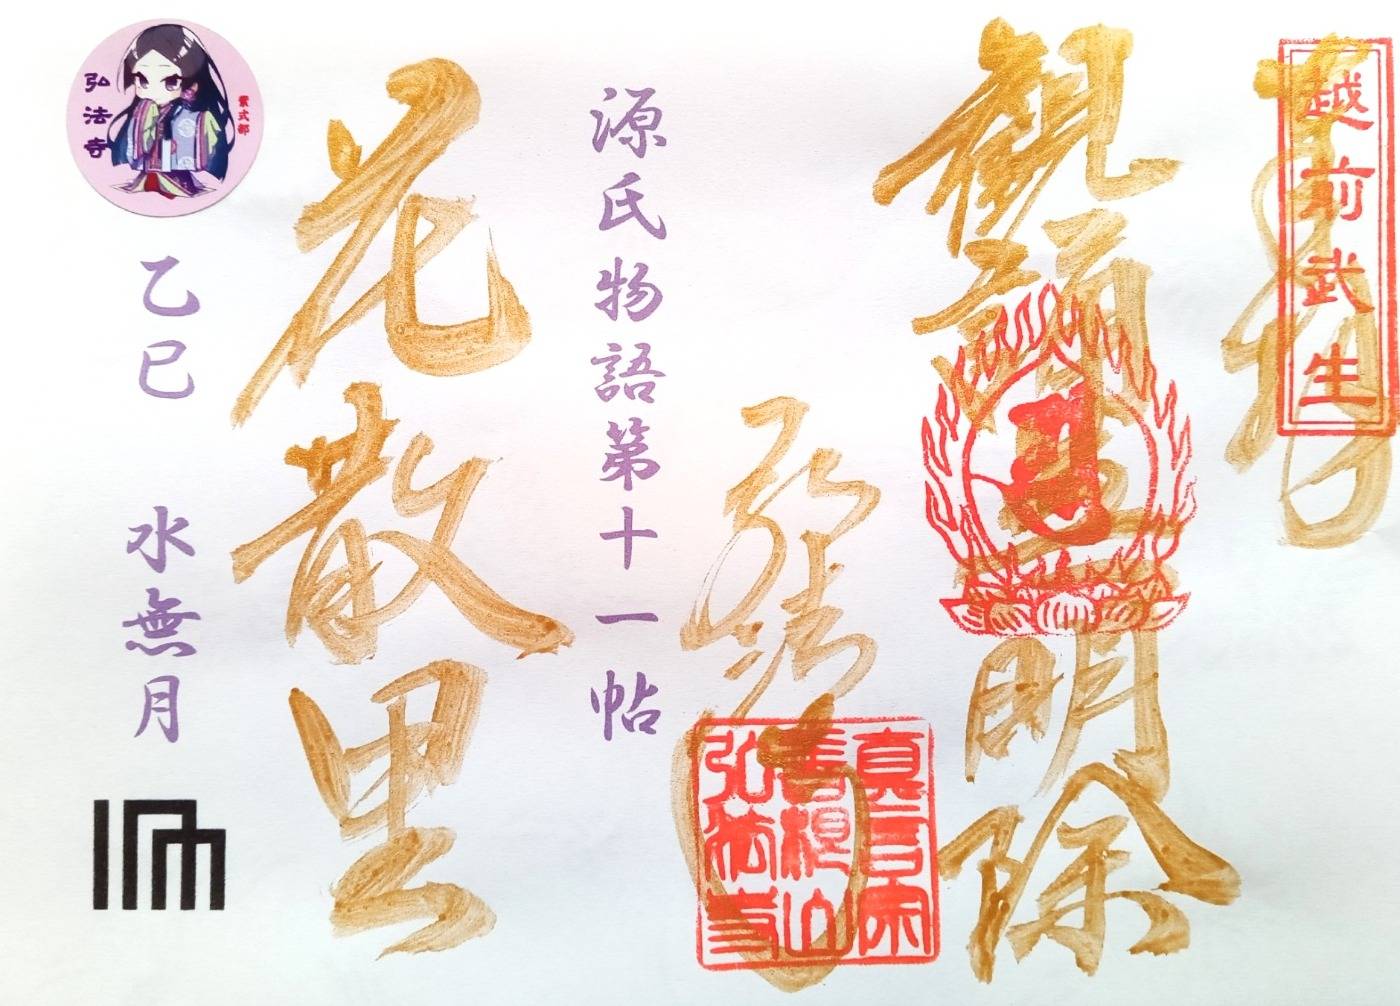 奉拝
越前武生
観
明除
弘法寺
真言宗
弘法寺
源氏物語第十一帖
花散里
紫式部
弘法寺
乙巳 水無月